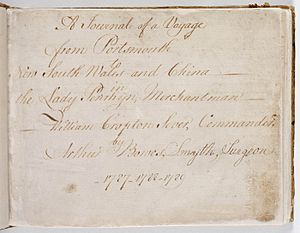 A Journal of a Voyage
from Portsmouth
to
New South Wales and China
in
the Lady Penrhyn, Merchantman
William Cropton Sever, Commander
by
Arthur Bowes, Smyth, Surgeon
-1787-1788-1789